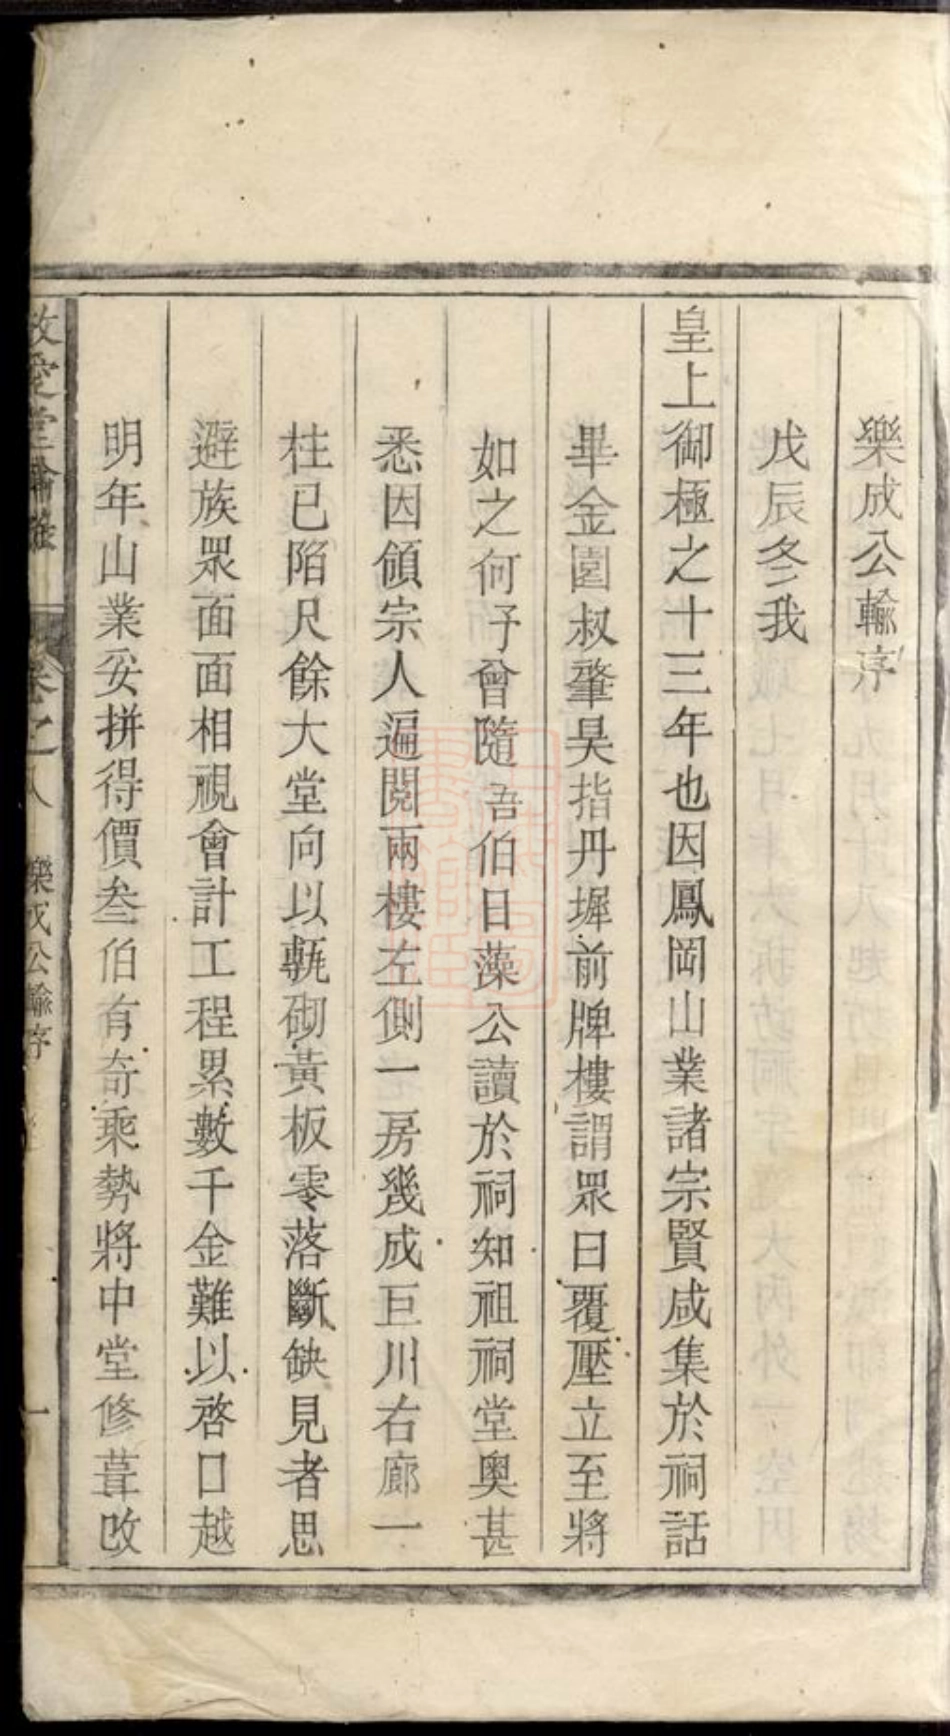 樂成公輸序
戊辰冬我
皇上御極之十三年也因鳳岡山業諸宗賢咸集於祠話
畢金園叔肇昊指丹墀前牌樓謂眾曰覆壓立至將
如之何予曾隨吾伯日藻公讀於祠知祖祠堂奧甚
悉因領宗人遍閱兩樓左側一房幾成巨川右廊一
柱已陷尺餘大堂向以甎砌黃板零落斷缺見者思
避族眾面面相視會計工程累數千金難以啓口越
明年山業妥拼得價叁伯有奇乘勢將中堂修葺改
愛堂
卷之八
樂成公輸序
一